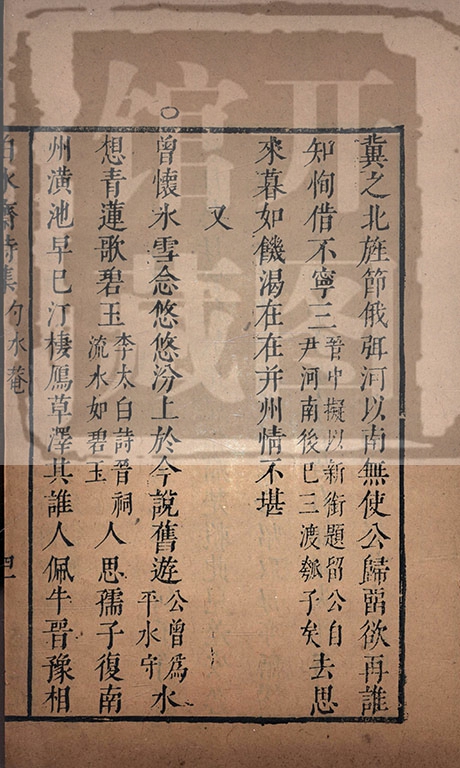 冀之北旌節俄弭河以南無使公歸留欲再誰
知恂借不寧三晉中擬以新銜題留公自尹河南後已三渡瓠子矣去思
來暮如饑渴在在并州情不堪
又
○曾懷冰雪念悠悠汾上於今說舊遊公曾爲平水守水
想青蓮歌碧玉李太白詩晉祠流水如碧玉人思孺子復南
州潢池早已汀棲鴈草澤其誰人佩牛晉豫相
白水齋詩集 勺水菴
開圖館藏